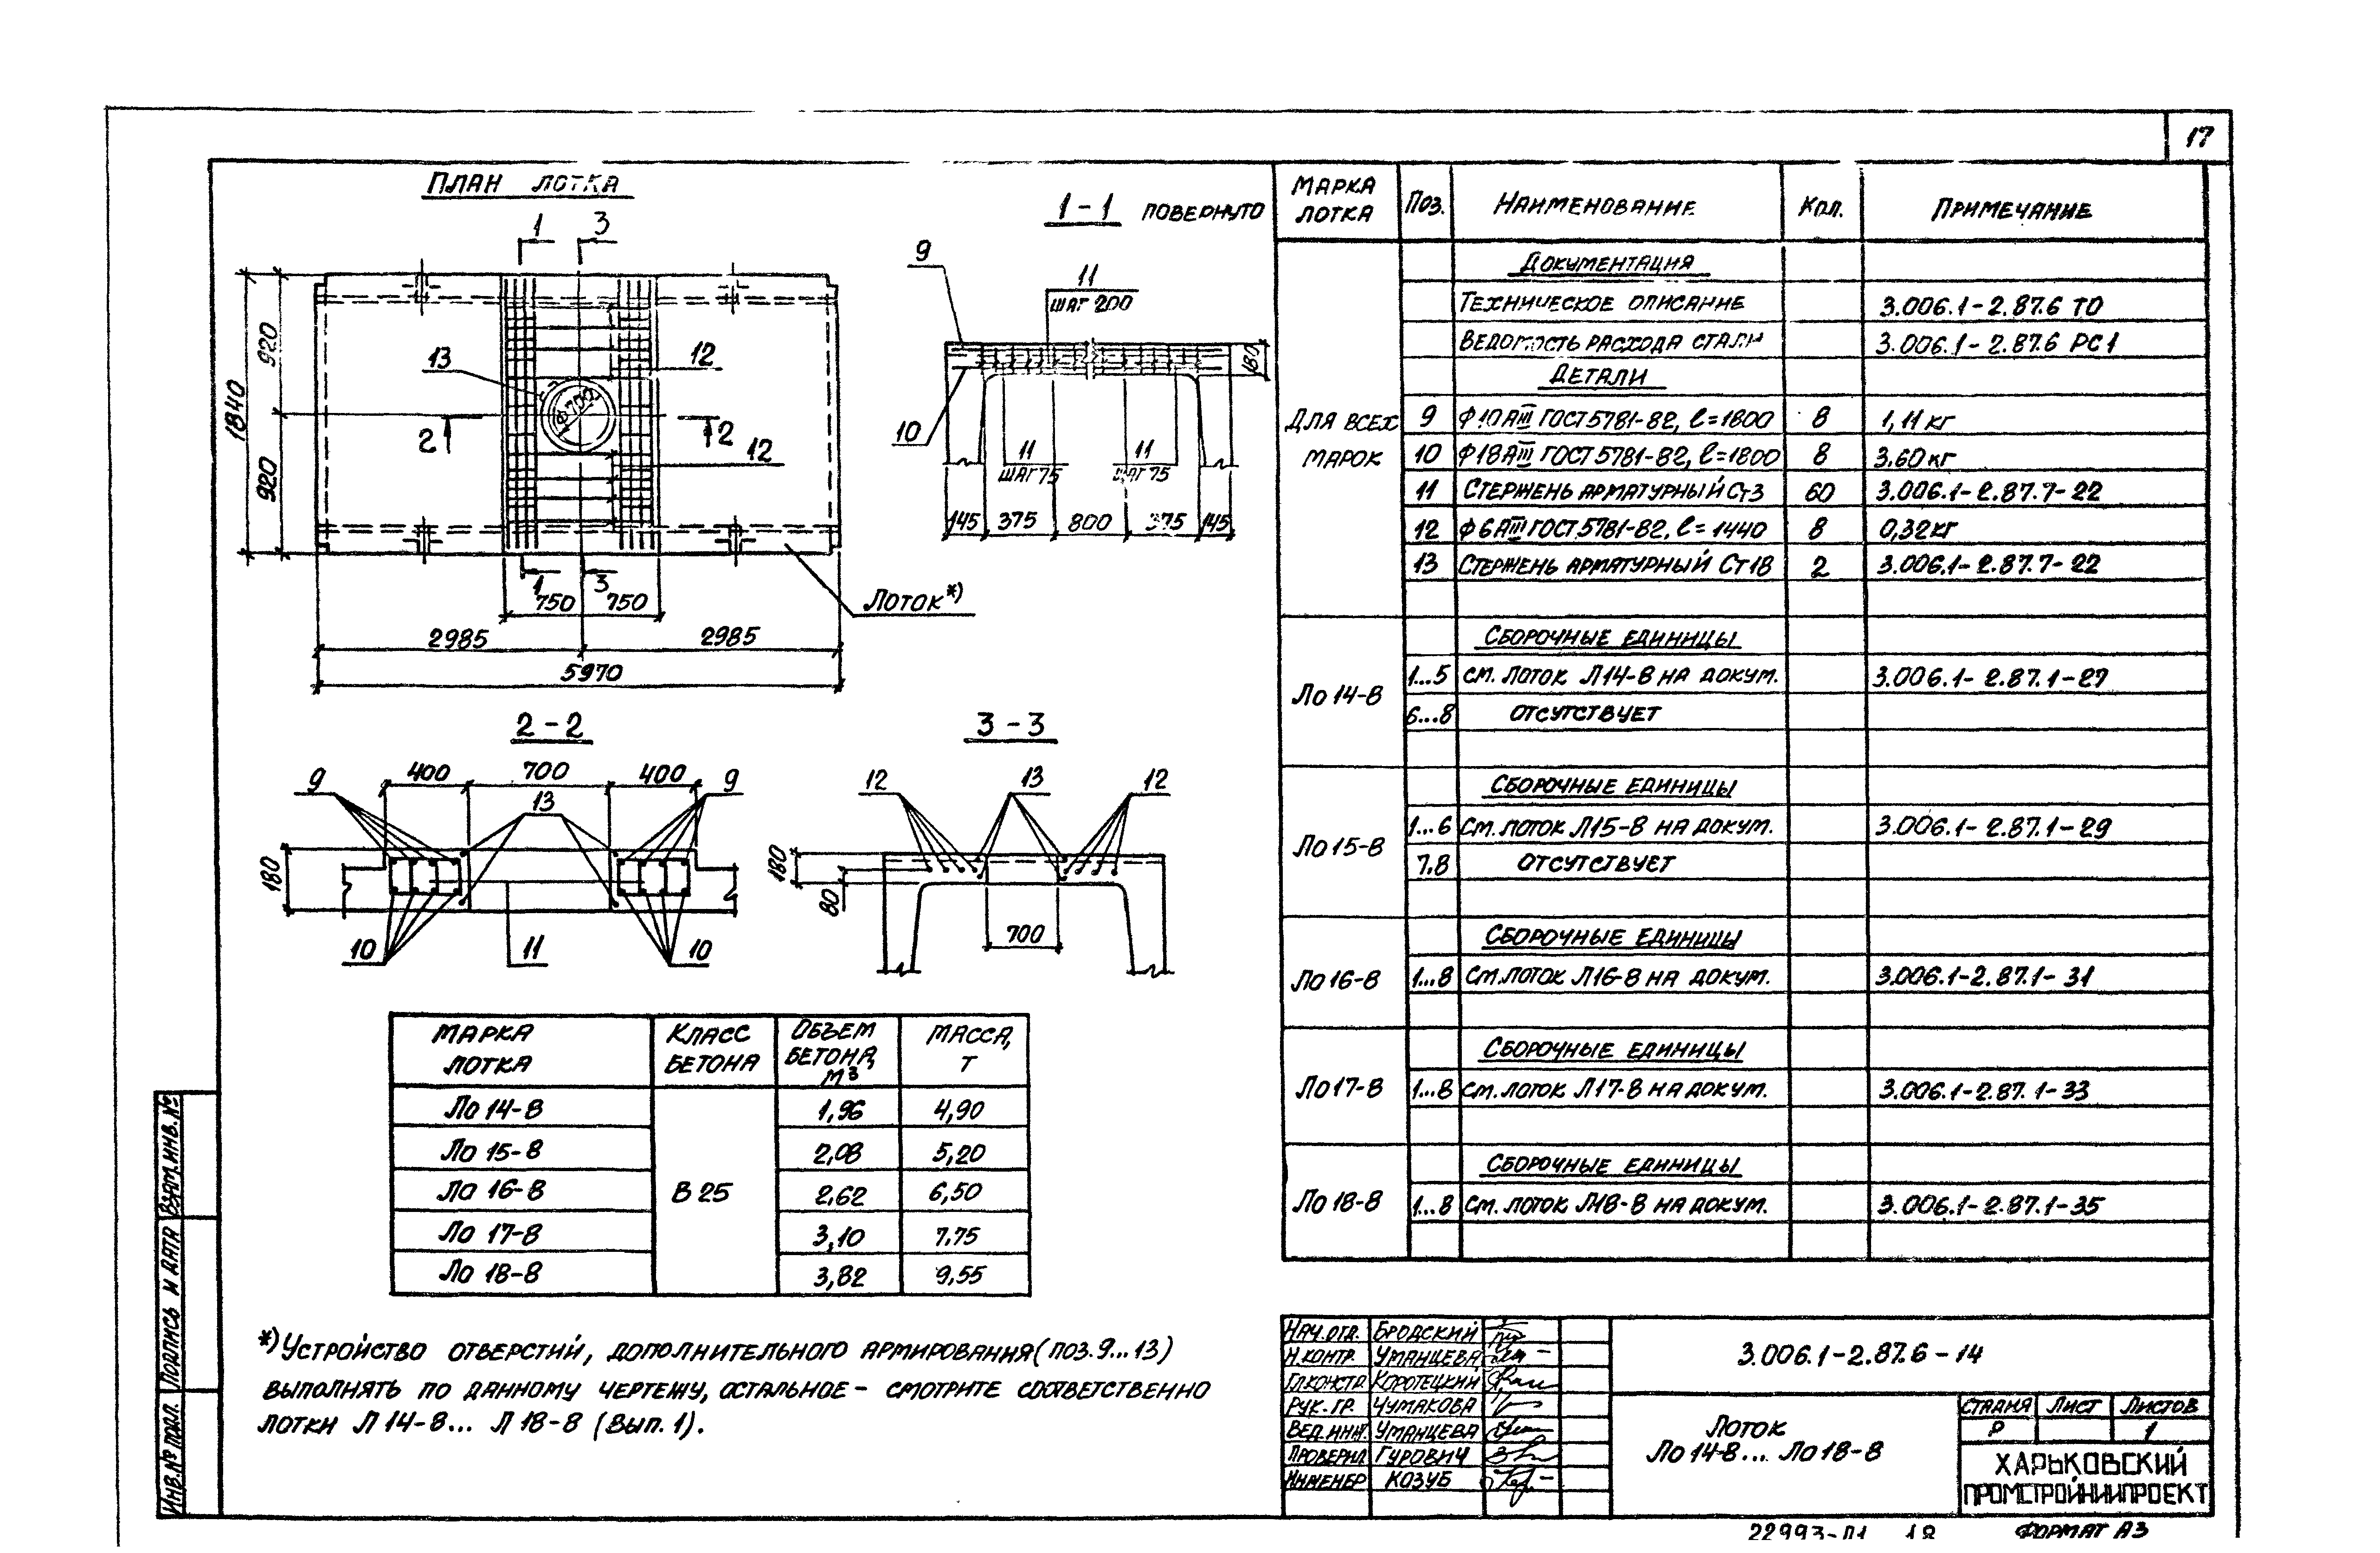 17
ПЛАН ЛОТКА
1 3
920
920
1840
13
12
Ф700
2 2
12
1 3
750 750
Лоток*)
2985 2985
5970
1-1 ПОВЕРНУТО
9
11
ШАГ 200
180
10
11
ШАГ 75
11
ШАГ 75
145 375 800 375 145
2-2
9 400 700 400 9
13
180
10 11 10
3-3
12 13 12
180
80
700
МАРКА ЛОТКА КЛАСС БЕТОНА ОБЪЕМ БЕТОНА, М3 МАССА, Т
Ло 14-8 1,96 4,90
Ло 15-8 2,08 5,20
Ло 16-8 В 25 2,62 6,50
Ло 17-8 3,10 7.75
Ло 18-8 3,82 9,55
*) УСТРОЙСТВО ОТВЕРСТИЙ, ДОПОЛНИТЕЛЬНОГО АРМИРОВАНИЯ (ПОЗ. 9...13)
ВЫПОЛНЯТЬ ПО ДАННОМУ ЧЕРТЕЖУ, ОСТАЛЬНОЕ - СМОТРИТЕ СООТВЕТСТВЕННО
ЛОТКИ Л 14-8... Л 18-8 (ВЫП. 1).
МАРКА ЛОТКА ПОЗ. НАИМЕНОВАНИЕ КОЛ. ПРИМЕЧАНИЕ
ДОКУМЕНТАЦИЯ
ТЕХНИЧЕСКОЕ ОПИСАНИЕ 3.006.1-2.87.6 ТО
ВЕДОМОСТЬ РАСХОДА СТАЛИ 3.006.1-2.87.6 РС1
ДЕТАЛИ
ДЛЯ ВСЕХ 9 Ф10АIII ГОСТ 5781-82, ℓ=1800 8 1,11 кг
МАРОК 10 Ф18АIII ГОСТ 5781-82, ℓ=1800 8 3.60 кг
11 СТЕРЖЕНЬ АРМАТУРНЫЙ Ст3 60 3.006.1-2.87.7-22
12 Ф6АIII ГОСТ 5781-82, ℓ=1440 8 0,32 кг
13 СТЕРЖЕНЬ АРМАТУРНЫЙ Ст18 2 3.006.1-2.87.7-22
СБОРОЧНЫЕ ЕДИНИЦЫ
Ло 14-8 1...5 СМ. ЛОТОК Л14-8 НА ДОКУМ. 3.006.1-2.87.1-27
6...8 ОТСУТСТВУЕТ
СБОРОЧНЫЕ ЕДИНИЦЫ
Ло 15-8 1...6 СМ. ЛОТОК Л15-8 НА ДОКУМ. 3.006.1-2.87.1-29
7.8 ОТСУТСТВУЕТ
СБОРОЧНЫЕ ЕДИНИЦЫ
Ло 16-8 1...8 СМ. ЛОТОК Л16-8 НА ДОКУМ. 3.006.1-2.87.1-31
СБОРОЧНЫЕ ЕДИНИЦЫ
Ло 17-8 1...8 СМ. ЛОТОК Л17-8 НА ДОКУМ. 3.006.1-2.87.1-33
СБОРОЧНЫЕ ЕДИНИЦЫ
Ло 18-8 1...8 СМ. ЛОТОК Л18-8 НА ДОКУМ. 3.006.1-2.87.1-35
НАЧ.ОТД. БРОДСКИЙ
Н.КОНТР. УМАНЦЕВА
ГЛ.КОНСТР. КОРОТЕЦКИЙ
РУК. ГР. ЧУМАКОВА
ВЕД.ИНЖ. УМАНЦЕВА
ПРОВЕРИЛ ГУРОВИЧ
ИНЖЕНЕР КОЗУБ
3.006.1-2.87.6-14
ЛОТОК
Ло 14-8... Ло 18-8
СТАДИЯ ЛИСТ ЛИСТОВ
Р 1
ХАРЬКОВСКИЙ
ПРОМСТРОЙНИИПРОЕКТ
22993-01 18 ФОРМАТ А3
ИНВ.№ ПОДЛ. ПОДПИСЬ И ДАТА ВЗАМ.ИНВ.№